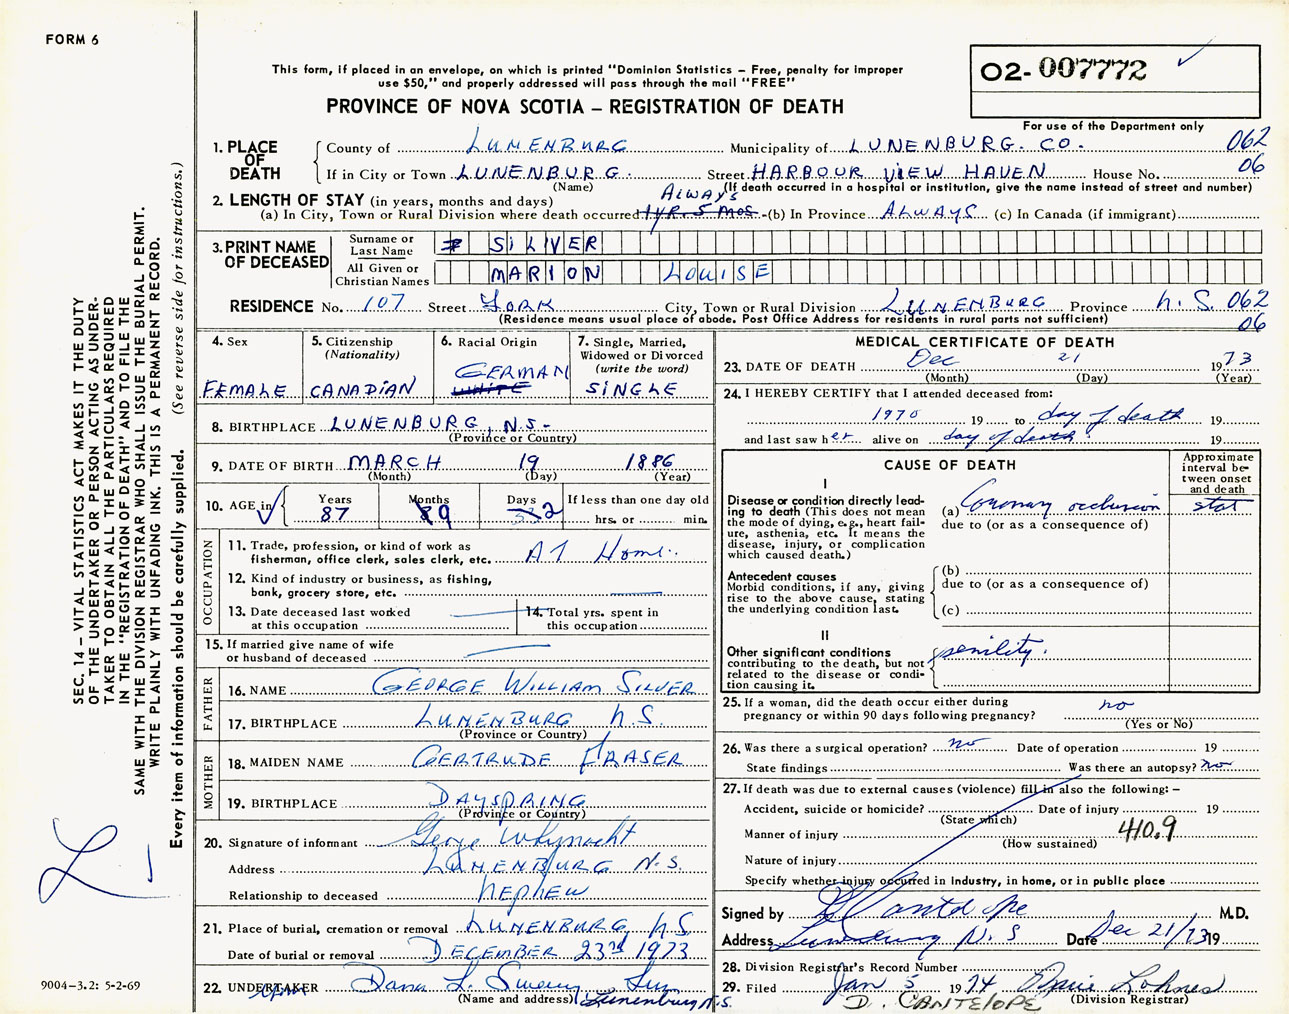 FORM 6
This form, if placed in an envelope, on which is printed "Dominion Statistics – Free, penalty for improper
use $50," and properly addressed will pass through the mail "FREE"
PROVINCE OF NOVA SCOTIA – REGISTRATION OF DEATH
02-007772
For use of the Department only
062
06
1. PLACE OF DEATH
County of LUNENBURG Municipality of LUNENBURG. CO.
If in City or Town LUNENBURG. Street HARBOUR VIEW HAVEN House No.
(Name) (If death occurred in a hospital or institution, give the name instead of street and number)
2. LENGTH OF STAY (in years, months and days) Always
(a) In City, Town or Rural Division where death occurred 1 yr. 5 mos. -(b) In Province ALWAYS (c) In Canada (if immigrant)
3. PRINT NAME OF DECEASED
Surname or Last Name SILVER
All Given or Christian Names MARION LOUISE
RESIDENCE No. 107 Street YORK City, Town or Rural Division LUNENBURG Province N.S. 062
(Residence means usual place of abode. Post Office Address for residents in rural parts not sufficient) 06
4. Sex
FEMALE
5. Citizenship
(Nationality)
CANADIAN
6. Racial Origin
GERMAN
WHITE
7. Single, Married,
Widowed or Divorced
(write the word)
SINGLE
8. BIRTHPLACE LUNENBURG, N.S.
(Province or Country)
9. DATE OF BIRTH MARCH 19 1886
(Month) (Day) (Year)
10. AGE in Years 87 Months 9 Days 2 If less than one day old
hrs. or min.
OCCUPATION
11. Trade, profession, or kind of work as
fisherman, office clerk, sales clerk, etc. AT Home
12. Kind of industry or business, as fishing,
bank, grocery store, etc.
13. Date deceased last worked
at this occupation
14. Total yrs. spent in
this occupation
15. If married give name of wife
or husband of deceased
FATHER
16. NAME GEORGE WILLIAM SILVER
17. BIRTHPLACE LUNENBURG N.S.
(Province or Country)
MOTHER
18. MAIDEN NAME GERTRUDE FRASER
19. BIRTHPLACE DAYSPRING
(Province or Country)
20. Signature of informant George Whynacht
Address LUNENBURG N.S.
Relationship to deceased NEPHEW
21. Place of burial, cremation or removal LUNENBURG N.S.
Date of burial or removal DECEMBER 23rd 1973
22. UNDERTAKER Dana L. Sweeny
(Name and address) Lunenburg N.S.
MEDICAL CERTIFICATE OF DEATH
23. DATE OF DEATH Dec 21 1973
(Month) (Day) (Year)
24. I HEREBY CERTIFY that I attended deceased from:
1970 19 to day of death 19
and last saw her alive on day of death 19
CAUSE OF DEATH
Approximate
interval be-
tween onset
and death
I
Disease or condition directly lead-
ing to death (This does not mean
the mode of dying, e.g., heart fail-
ure, asthenia, etc. It means the
disease, injury, or complication
which caused death.)
(a) Coronary occlusion stat
due to (or as a consequence of)
Antecedent causes
Morbid conditions, if any, giving
rise to the above cause, stating
the underlying condition last.
(b)
due to (or as a consequence of)
(c)
II
Other significant conditions
contributing to the death, but not
related to the disease or condi-
tion causing it.
senility.
25. If a woman, did the death occur either during
pregnancy or within 90 days following pregnancy? no
(Yes or No)
26. Was there a surgical operation? no Date of operation 19
State findings Was there an autopsy? no
27. If death was due to external causes (violence) fill in also the following: –
Accident, suicide or homicide? Date of injury 19
(State which)
Manner of injury 410.9
(How sustained)
Nature of injury
Specify whether injury occurred in industry, in home, or in public place
Signed by D Cantelope M.D.
Address Lunenburg N.S Date Dec 21/73 19
28. Division Registrar's Record Number
29. Filed Jan 5 1974 Lohnes
D. CANTELOPE (Division Registrar)
SEC. 14 – VITAL STATISTICS ACT MAKES IT THE DUTY
OF THE UNDERTAKER OR PERSON ACTING AS UNDER-
TAKER TO OBTAIN ALL THE PARTICULARS REQUIRED
IN THE "REGISTRATION OF DEATH" AND TO FILE THE
SAME WITH THE DIVISION REGISTRAR WHO SHALL ISSUE THE BURIAL PERMIT.
WRITE PLAINLY WITH UNFADING INK. THIS IS A PERMANENT RECORD.
Every item of information should be carefully supplied. (See reverse side for instructions.)
9004-3.2: 5-2-69